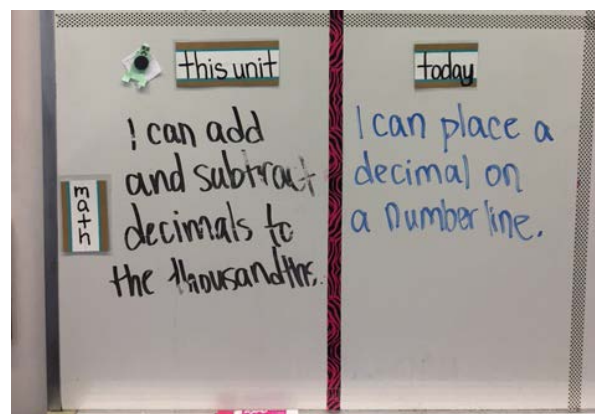 this unit
today
math
I can add
and subtract
decimals to
the thousandths.
I can place a
decimal on
a number line.